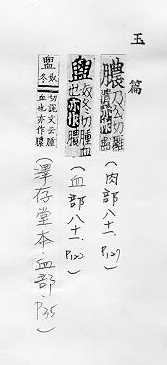 玉篇
膿 乃公切
(肉部八十一、P127)
奴冬切腫血
也亦作膿
(血部八十一、P122)
奴冬
切說文云腫
血也亦作膿
(澤存堂本血部、P35)